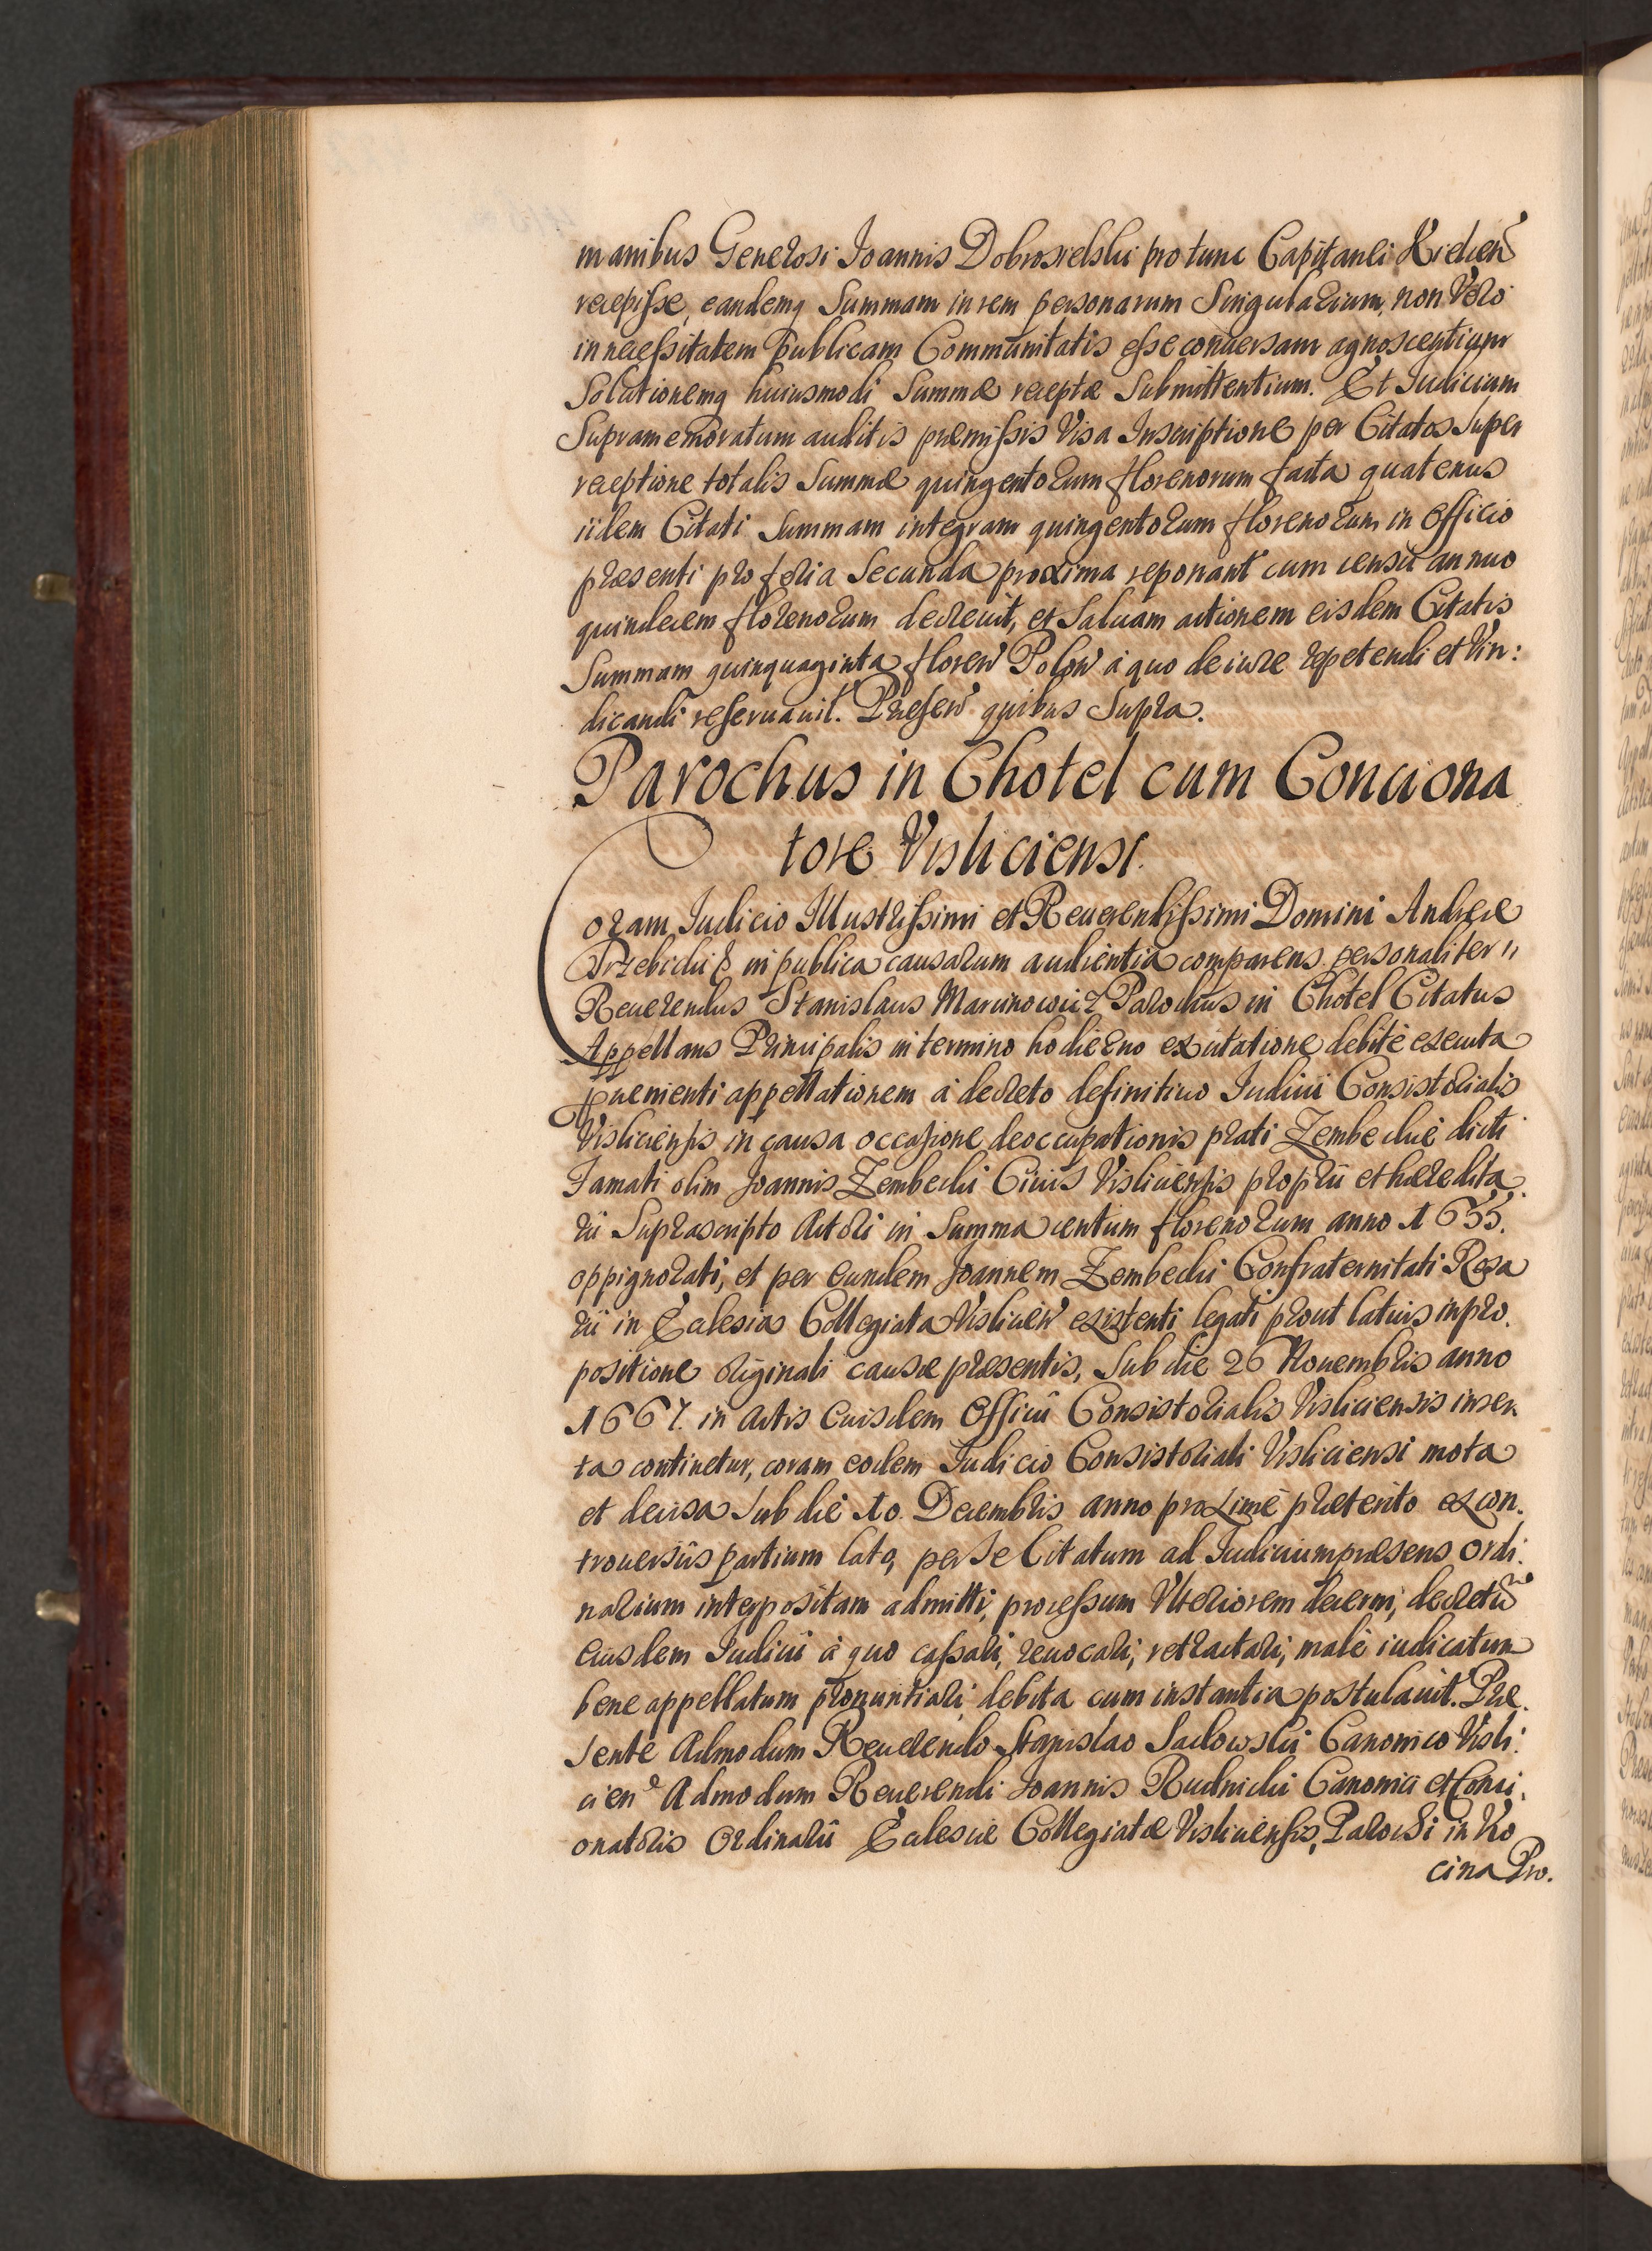 manibus Generosi Joannis Dobrosielski pro tunc Capitanei Kielcen
recepisse, eandemq Summam in rem personarum Singularium, non Vero
in necessitatem publicam Communitatis esse conuersam agnoscentium
Solutionemq huiusmodi Summæ receptæ Submittentium. Et Judicium
Supramemoratum auditis præmissis Visa Inscriptione per Citatos Super
receptione totalis Summæ quingentorum florenorum facta quatenus
iidem Citati Summam integram quingentorum florenorum in Officio
præsenti pro feria Secunda proxima reponant cum censu annuo
quindecem florenorum decreuit, et Saluam actionem eisdem Citatis
Summam quinquaginta floren Polon à quo de iure repetendi et Vin:
dicandi reseruauit. Præsen quibus Supra.
Parochus in Chotel cum Conciona
tore Visliciensi.
Coram Judicio Illustrissimi et Reuerendissimi Domini Andreæ
Trzebicki & in publica causarum audientia comparens personaliter
Reuerendus Stanislaus Marcinowicz Parochus in Chotel Citatus
Appellans Principalis in termino hodierno ex citatione debitè executa
proueniente appellationem à decreto definitiuo Judicii Consistorialis
Visliciensis in causa occasione deoccupationis prati Zembeckie dicti
Famati olim Joannis Zembecki Ciuis Visliciensis proprii et hæredita
rii Suprascripto Actori in Summa centum florenorum anno 1655.
oppignorati, et per eundem Joannem Zembecki Confraternitati Rosa
rii in Ecclesia Collegiata Vislicien existenti legati prout latius in pro
positione originali causæ præsentis, Sub die 26 Nouembris anno
1667. in Actis Euisdem Officii Consistorialis Visliciensis inser
ta continetur, coram eodem Judicio Consistoriali Visliciensi mota
et decisa Sub die 10. Decembris anno proximè præterito ex con
trouersiis partium lato, per Se Citatum ad Judicium præsens ordi:
narium interpositam admitti, processum Vlteriorem decerni, decretu
eiusdem Judicii à quo cassari, reuocari, retractari, malè iudicatum
bene appellatum pronuntiari debita cum instantia postulauit. Præ
sente Admodum Reuerendo Stanislao Sadowski Canonico Visli:
cien Admodum Reuerendi Joannis Rudnicki Canonici et Conci
onatoris Ordinarii Ecclesiæ Collegiatæ Visliciensis, Parochi in Ko
cina Pro.